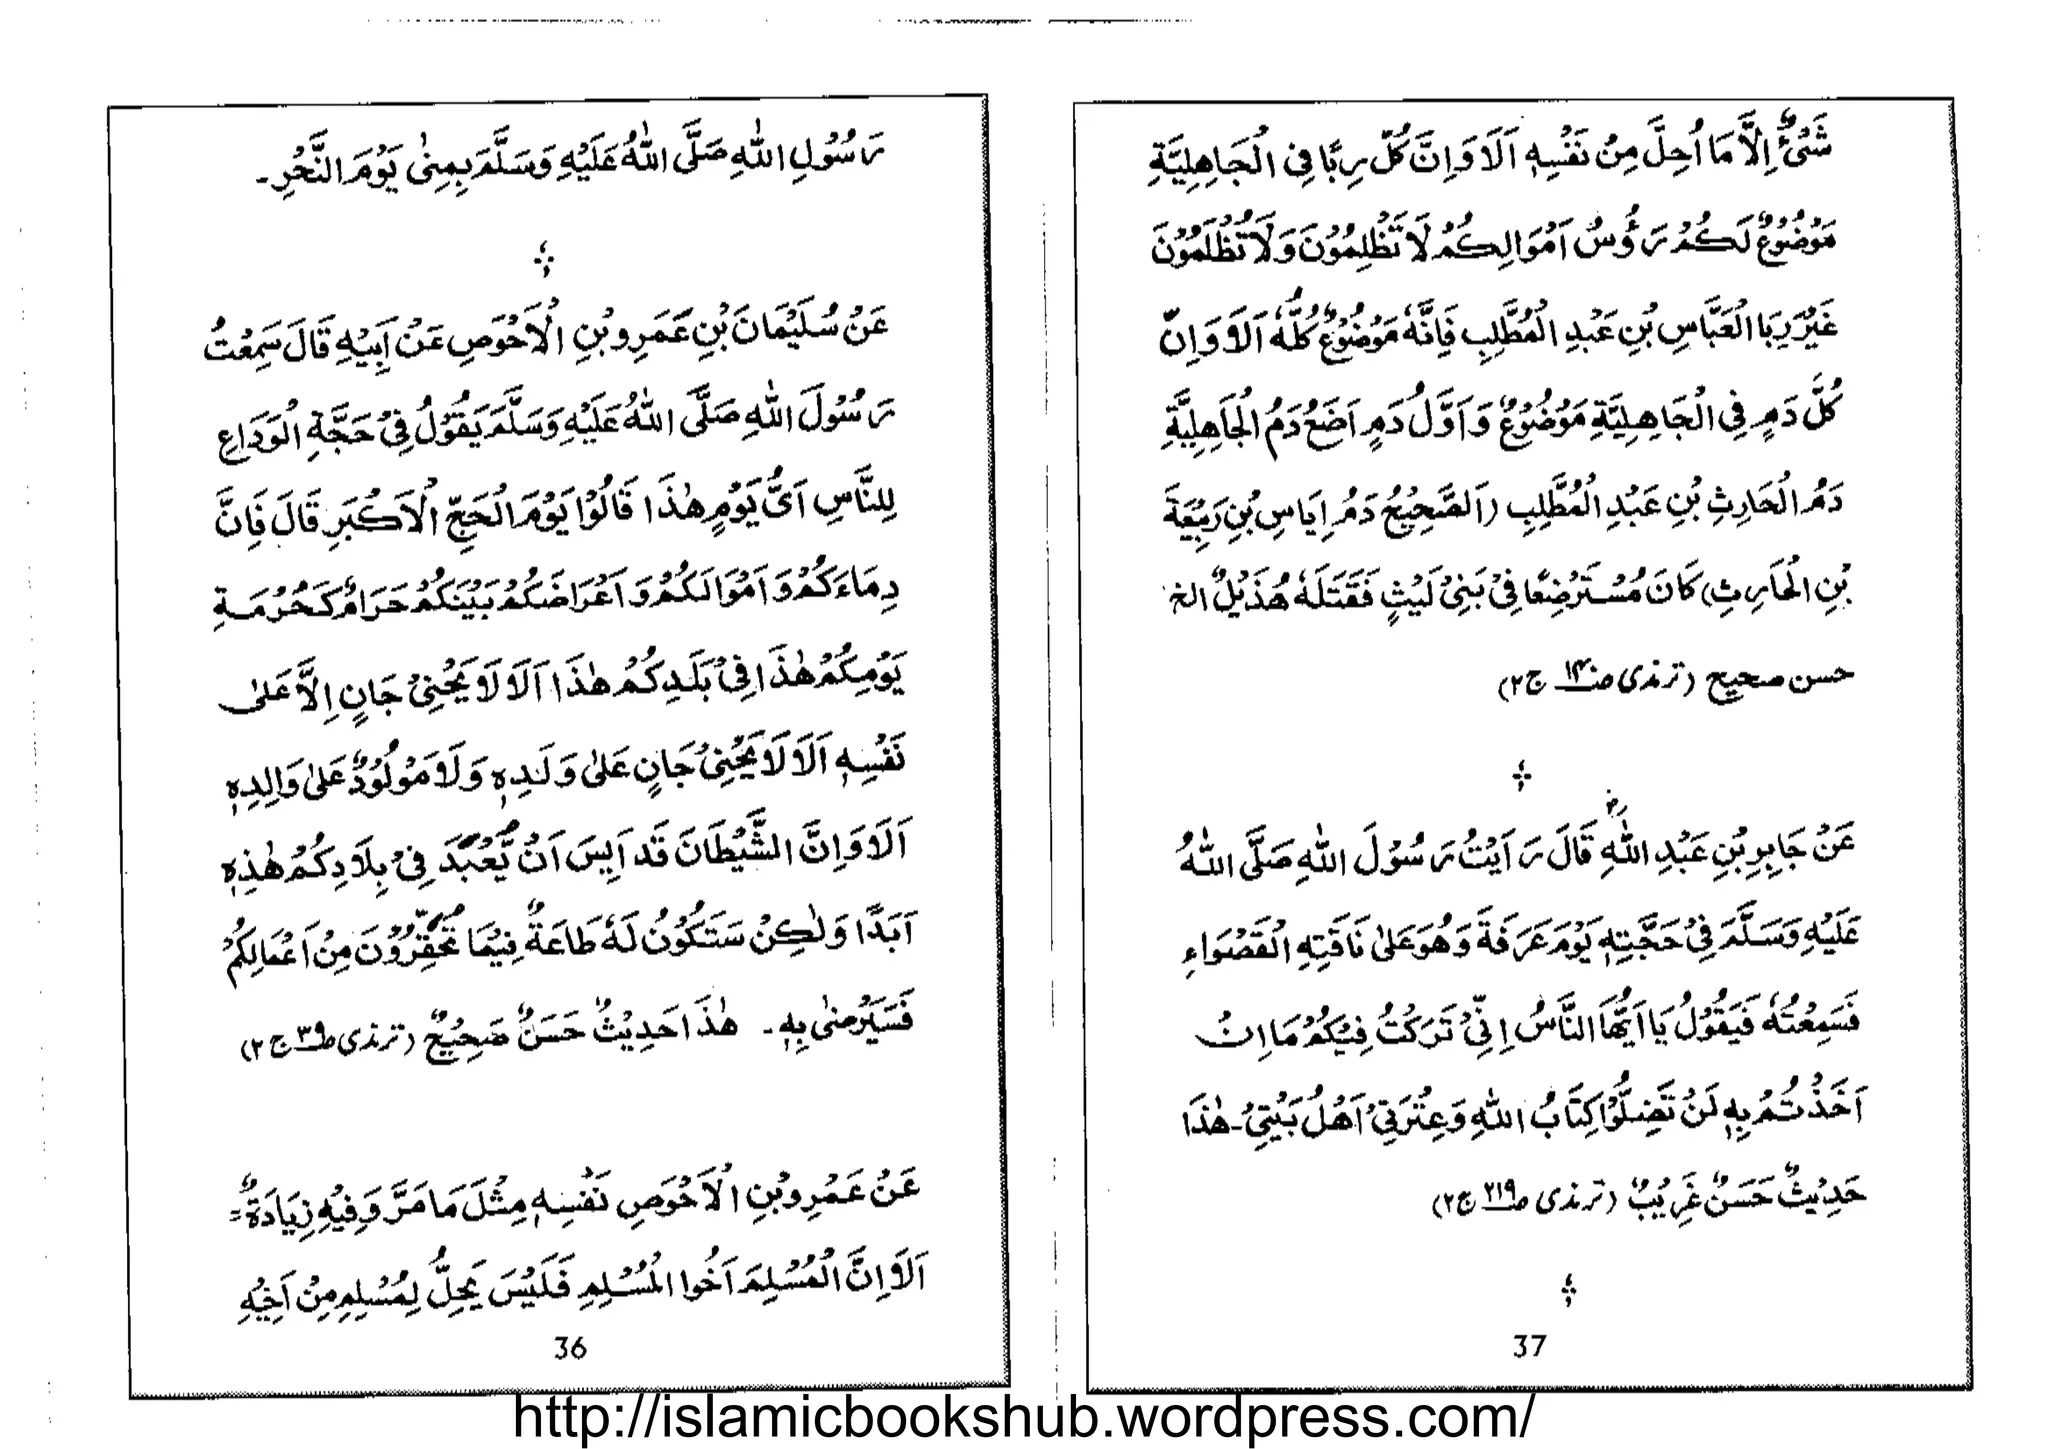 رَسُوْلِ اللهِ صَلَّى اللهُ عَلَيْهِ وَسَلَّمَ بِمِنٰى يَوْمَ النَّحْرِ۔
عَنْ سُلَيْمَانَ بْنِ عَمْرِو بْنِ الْاَحْوَصِ عَنْ اَبِيْهِ قَالَ سَمِعْتُ
رَسُوْلَ اللهِ صَلَّى اللهُ عَلَيْهِ وَسَلَّمَ يَقُوْلُ فِيْ حَجَّةِ الْوَدَاعِ
لِلنَّاسِ اَيُّ يَوْمٍ هٰذَا قَالُوْا يَوْمَ الْحَجِّ الْاَكْبَرِ قَالَ فَاِنَّ
دِمَاءَكُمْ وَاَمْوَالَكُمْ وَاَعْرَاضَكُمْ بَيْنَكُمْ حَرَامٌ كَحُرْمَةِ
يَوْمِكُمْ هٰذَا فِيْ بَلَدِكُمْ هٰذَا اَلَا لَا يَجْنِيْ جَانٍ اِلَّا عَلٰى
نَفْسِهٖ اَلَا لَا يَجْنِيْ جَانٍ عَلٰى وَلَدِهٖ وَلَا مَوْلُوْدٌ عَلٰى وَالِدِهٖ
اَلَا وَاِنَّ الشَّيْطَانَ قَدْ اَيِسَ اَنْ يُّعْبَدَ فِيْ بِلَادِكُمْ هٰذِهٖ
اَبَدًا وَلٰكِنْ سَتَكُوْنُ لَهٗ طَاعَةٌ فِيْمَا تُحَقِّرُوْنَ مِنْ اَعْمَالِكُمْ
فَسَيَرْضٰى بِهٖ۔ هٰذَا حَدِيْثٌ حَسَنٌ صَحِيْحٌ (ترمذى ص۳۹ ج۲)
عَنْ عَمْرِو بْنِ الْاَحْوَصِ نَفْسِهٖ مِثْلَ مَا مَرَّ وَفِيْهِ زِيَادَةٌ=
اَلَا وَاِنَّ الْمُسْلِمَ اَخُوا الْمُسْلِمِ فَلَيْسَ يَحِلُّ لِمُسْلِمٍ مِنْ اَخِيْهِ
36
شَيْءٌ اِلَّا مَا اُحِلَّ مِنْ نَفْسِهٖ اَلَا وَاِنَّ كُلَّ رِبًا فِى الْجَاهِلِيَّةِ
مَوْضُوْعٌ لَكُمْ رَؤُسُ اَمْوَالِكُمْ لَا تَظْلِمُوْنَ وَلَا تُظْلَمُوْنَ
غَيْرَ رِبَا الْعَبَّاسِ بْنِ عَبْدِ الْمُطَّلِبِ فَاِنَّهٗ مَوْضُوْعٌ كُلُّهٗ اَلَا وَاِنَّ
كُلَّ دَمٍ فِى الْجَاهِلِيَّةِ مَوْضُوْعٌ وَاَوَّلُ دَمٍ اَضَعُ دَمُ الْجَاهِلِيَّةِ
دَمُ الْحَارِثِ بْنِ عَبْدِ الْمُطَّلِبِ (اَلصَّحِيْحُ دَمُ اِيَاسِ بْنِ رَبِيْعَةَ
بْنِ الْحَارِثِ) كَانَ مُسْتَرْضِعًا فِيْ بَنِيْ لَيْثٍ فَقَتَلَهٗ هُذَيْلٌ الخ
حسن صحيح (ترمذى ص۱۴۰ ج۲)
عَنْ جَابِرِ بْنِ عَبْدِ اللهِ رض قَالَ رَاَيْتُ رَسُوْلَ اللهِ صَلَّى اللهُ
عَلَيْهِ وَسَلَّمَ فِيْ حَجَّتِهٖ يَوْمَ عَرَفَةَ وَهُوَ عَلٰى نَاقَتِهِ الْقَصْوَاءِ
فَسَمِعْتُهٗ فَيَقُوْلُ يَا اَيُّهَا النَّاسُ اِنِّيْ تَرَكْتُ فِيْكُمْ مَا اِنْ
اَخَذْتُمْ بِهٖ لَنْ تَضِلُّوْا كِتَابُ اللهِ وَعِتْرَتِيْ اَهْلُ بَيْتِيْ۔ هٰذَا
حَدِيْثٌ حَسَنٌ غَرِيْبٌ (ترمذى ص۲۱۹ ج۲)
37
http://islamicbookshub.wordpress.com/